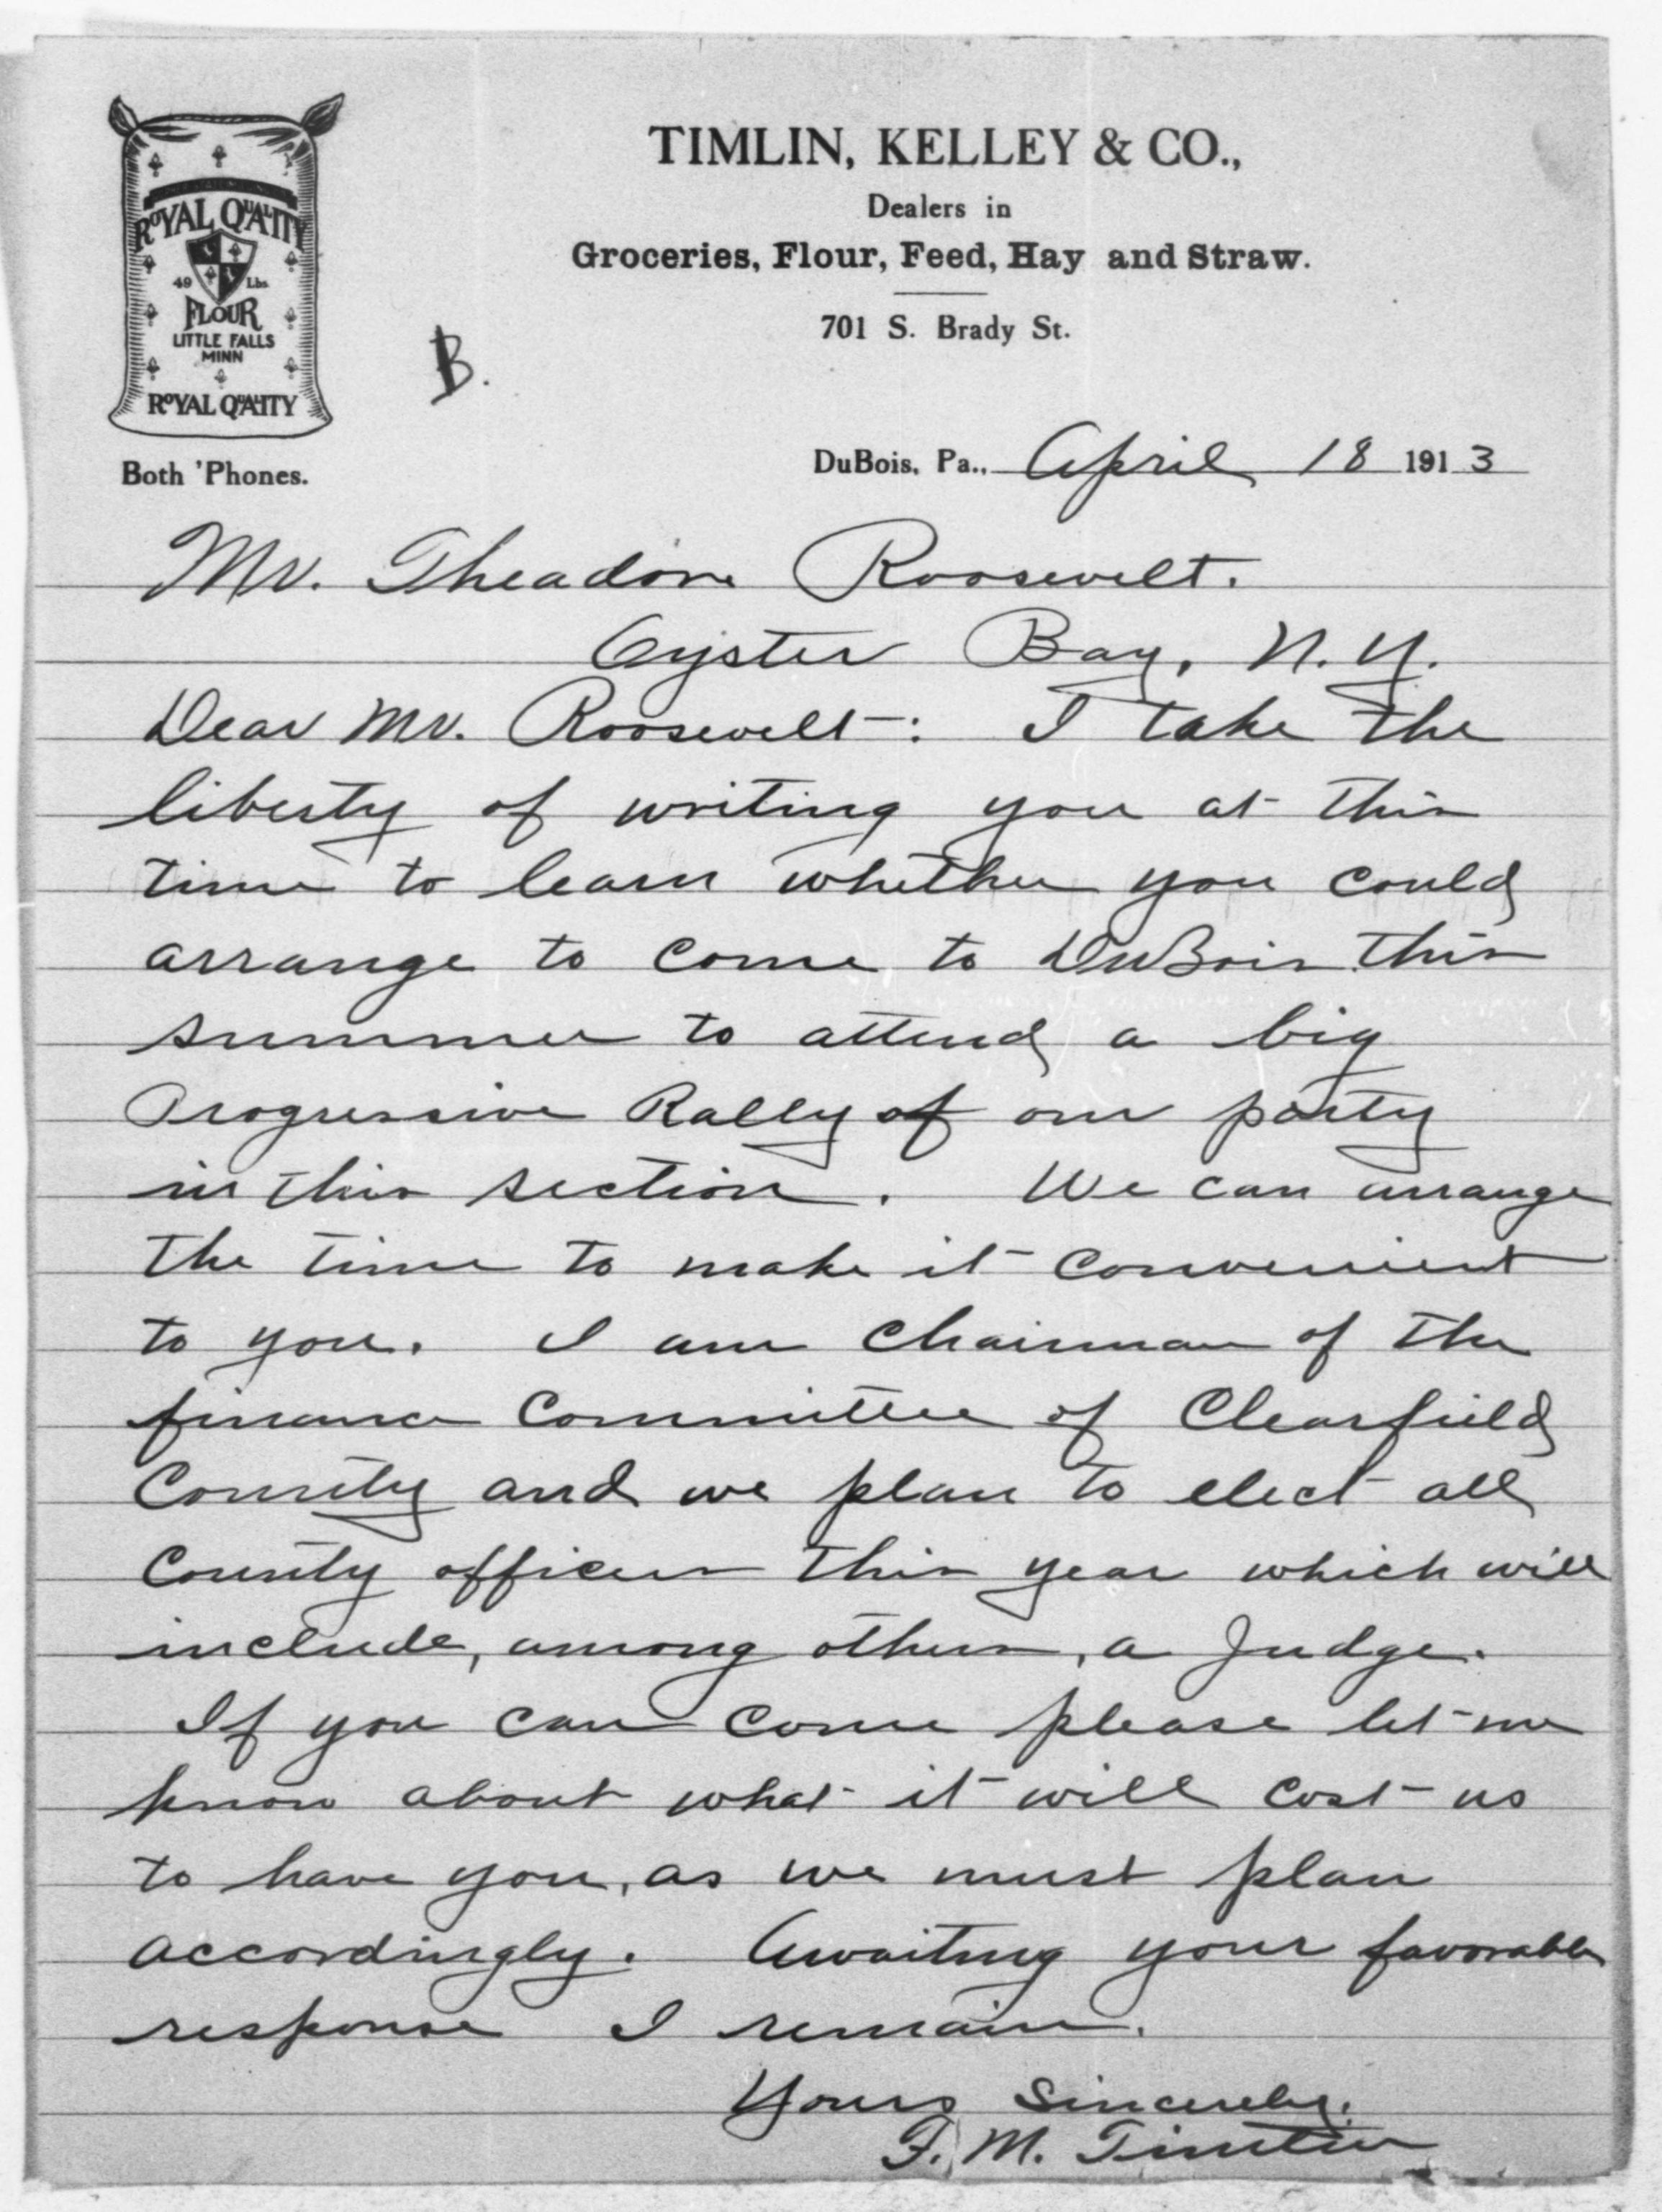 TIMLIN, KELLEY & CO.,
Dealers in
Groceries, Flour, Feed, Hay and Straw.
701 S. Brady St.
ROYAL QUALITY
49 Lbs.
FLOUR
LITTLE FALLS
MINN
ROYAL QUALITY
Both 'Phones.
B.
DuBois, Pa., April 18 1913
Mr. Theadore Roosevelt.
Oyster Bay, N. Y.
Dear Mr. Roosevelt: I take the
liberty of writing you at this
time to learn whether you could
arrange to come to DuBois this
summer to attend a big
Progressive Rally of our party
in this section. We can arrange
the time to make it convenient
to you. I am Chairman of the
finance Committee of Clearfield
County and we plan to elect all
County officers this year which will
include, among others, a Judge.
If you can come please let me
know about what it will cost us
to have you, as we must plan
accordingly. Awaiting your favorable
response I remain.
Yours Sincerely.
F. M. Timlin